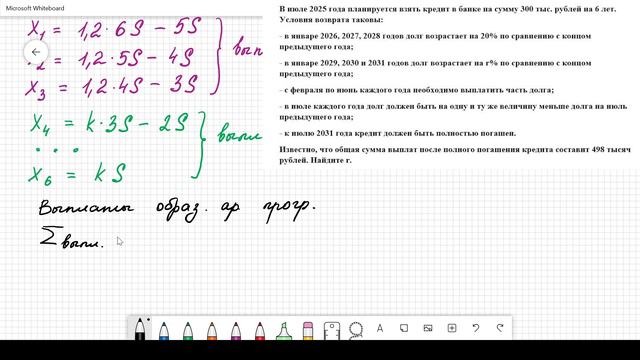 Microsoft Whiteboard
X₁ = 1,2 · 6S − 5S
= 1,2 · 5S − 4S
X₃ = 1,2 · 4S − 3S
X₄ = k · 3S − 2S
. . .
X₆ = kS
Выплаты образ. ар прогр.
Σвыпл.
В июле 2025 года планируется взять кредит в банке на сумму 300 тыс. рублей на 6 лет.
Условия возврата таковы:
- в январе 2026, 2027, 2028 годов долг возрастает на 20% по сравнению с концом
предыдущего года;
- в январе 2029, 2030 и 2031 годов долг возрастает на r% по сравнению с концом
предыдущего года;
- с февраля по июнь каждого года необходимо выплатить часть долга;
- в июле каждого года долг должен быть на одну и ту же величину меньше долга на июль
предыдущего года;
- к июлю 2031 года кредит должен быть полностью погашен.
Известно, что общая сумма выплат после полного погашения кредита составит 498 тысяч
рублей. Найдите r.